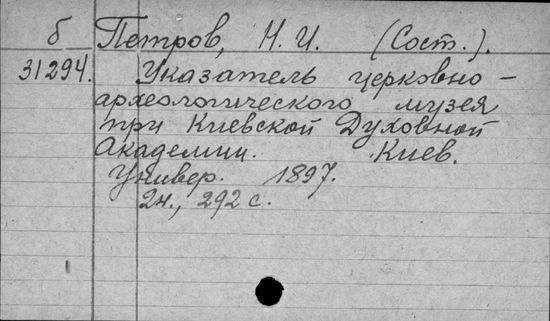 б Петров, Н. И. (Сост.).
31294. Указатель церковно-
археологического музея
при Киевской Духовной
Академии. Киев.
Универ. 1897.
2н., 292 с.